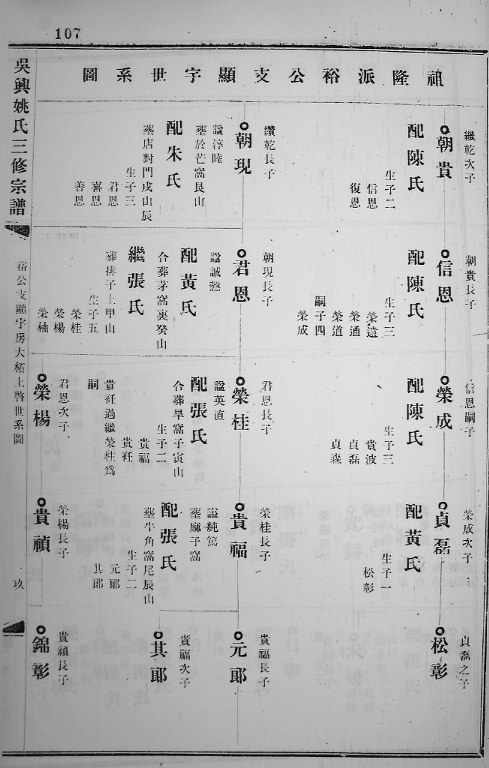 107
祖隆派裕公支顯字世系圖
吳興姚氏三修宗譜
裕公支顯宇房大柘上啓世系圖
玖
纘乾次子
朝貴
配陳氏
生子二
信恩
復恩
纘乾長子
朝現
諡淳睦
墓於芒窩艮山
配朱氏
墓店對門戌山辰
生子三
君恩
喜恩
善恩
朝貴長子
信恩
配陳氏
生子三
榮遠
榮通
榮道
嗣子四
榮成
朝現長子
君恩
諡誠慤
配黃氏
合葬茅窩裏癸山
繼張氏
葬排子上甲山
生子五
榮桂
榮楊
榮柚
信恩嗣子
榮成
配陳氏
生子三
貴波
貞磊
貞森
君恩長子
榮桂
諡英直
配張氏
合葬旱窩子寅山
生子二
貴福
貴衽
貴衽過繼榮桂爲
嗣
君恩次子
榮楊
榮成次子
貞磊
配黃氏
生子一
松彰
榮桂長子
貴福
諡純篤
墓廟子窩
配張氏
墓牛角窩尾辰山
生子二
元郎
其郎
榮楊長子
貴禎
貞磊之子
松彰
貴福長子
元郎
貴福次子
其郎
貴禎長子
錦彰